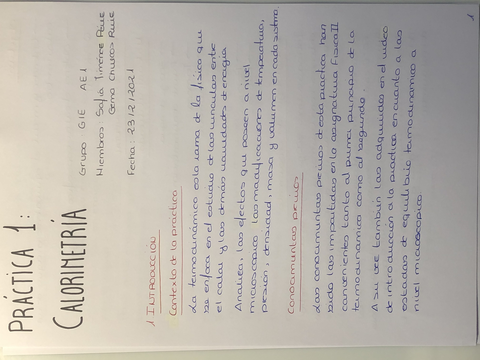 PRÁCTICA 1:
CALORIMETRÍA
Grupo GIE AE1
Miembros Sofía Jiménez
Gema
Fecha: 23/2/2021
1 INTRODUCCIÓN
Contexto de la práctica
La termodinámica es la rama de la física que
se enfoca en el estudio de los vínculos entre
el calor y las demás variedades de energía.
Analiza, los efectos que poseen a nivel
microscópico las modificaciones de temperatura,
presión, densidad, masa y volumen en cada sistema.
Conocimientos previos
Los conocimientos previos de esta práctica han
sido los impartidos en la asignatura Física II
convenientes tanto al primer principio de la
termodinámica como al segundo.
A su vez también los adquiridos en el video
de introducción a la práctica en cuanto a los
estados de equilibrio termodinámico a
nivel microscópico.
1